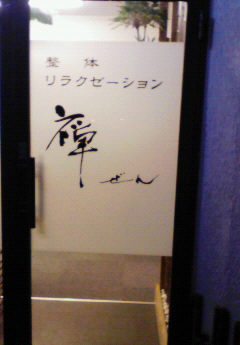 整体
リラクゼーション
禅
ぜん